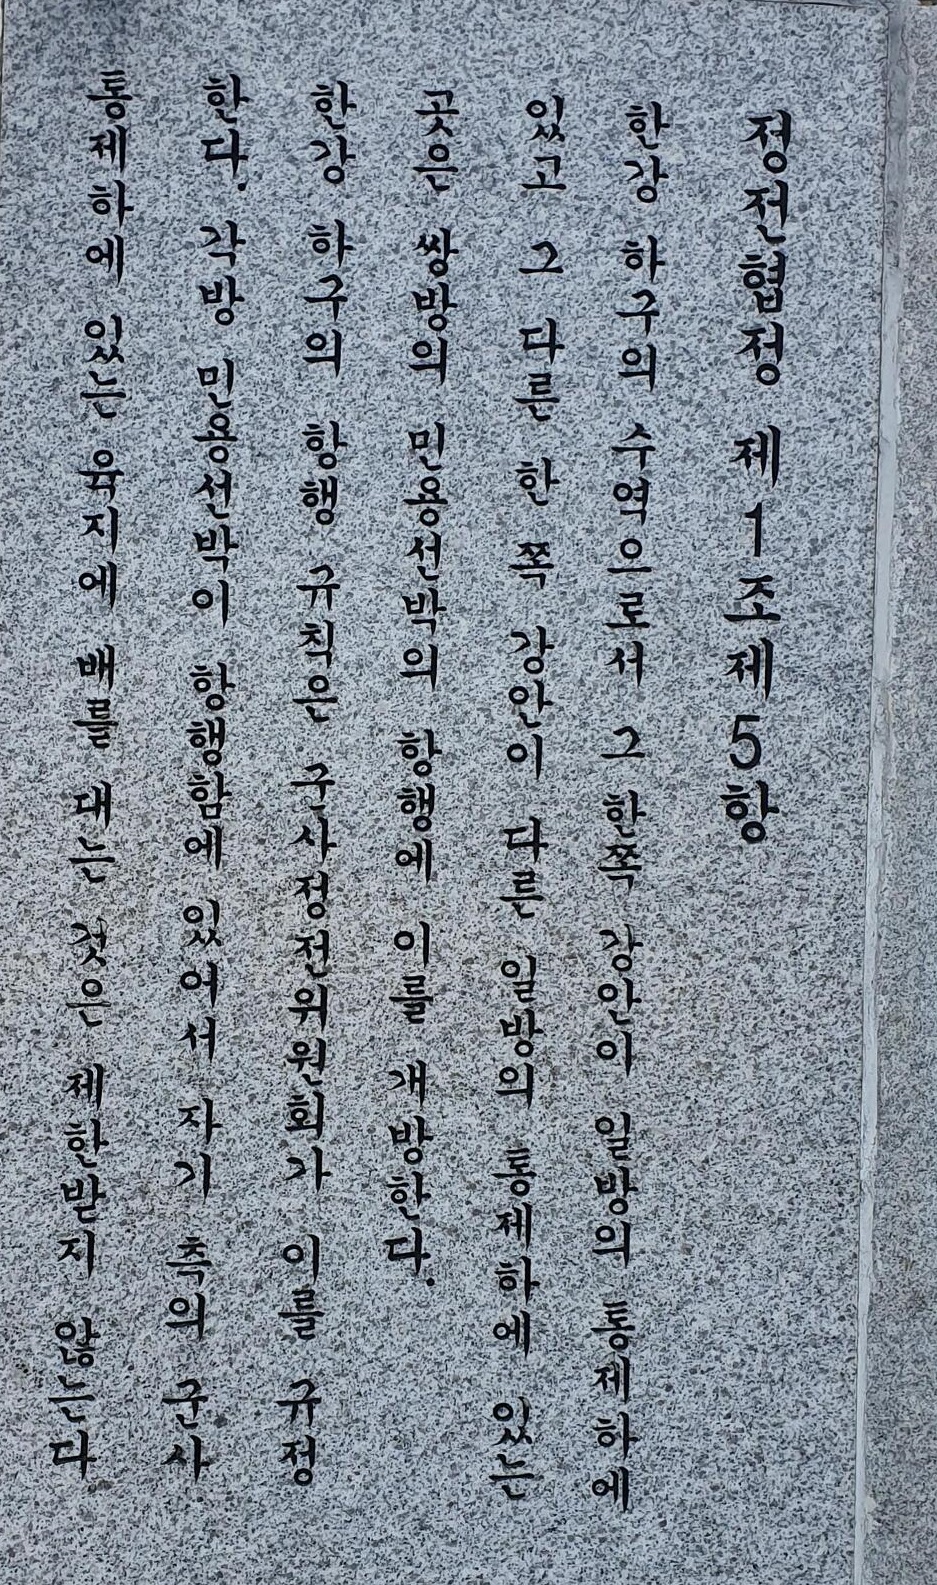 정전협정 제1조제5항
한강 하구의 수역으로서 그 한쪽 강안이 일방의 통제하에
있고 그 다른 한 쪽 강안이 다른 일방의 통제하에 있는
곳은 쌍방의 민용선박의 항행에 이를 개방한다.
한강 하구의 항행 규칙은 군사정전위원회가 이를 규정
한다. 각방 민용선박이 항행함에 있어서 자기 측의 군사
통제하에 있는 육지에 배를 대는 것은 제한받지 않는다